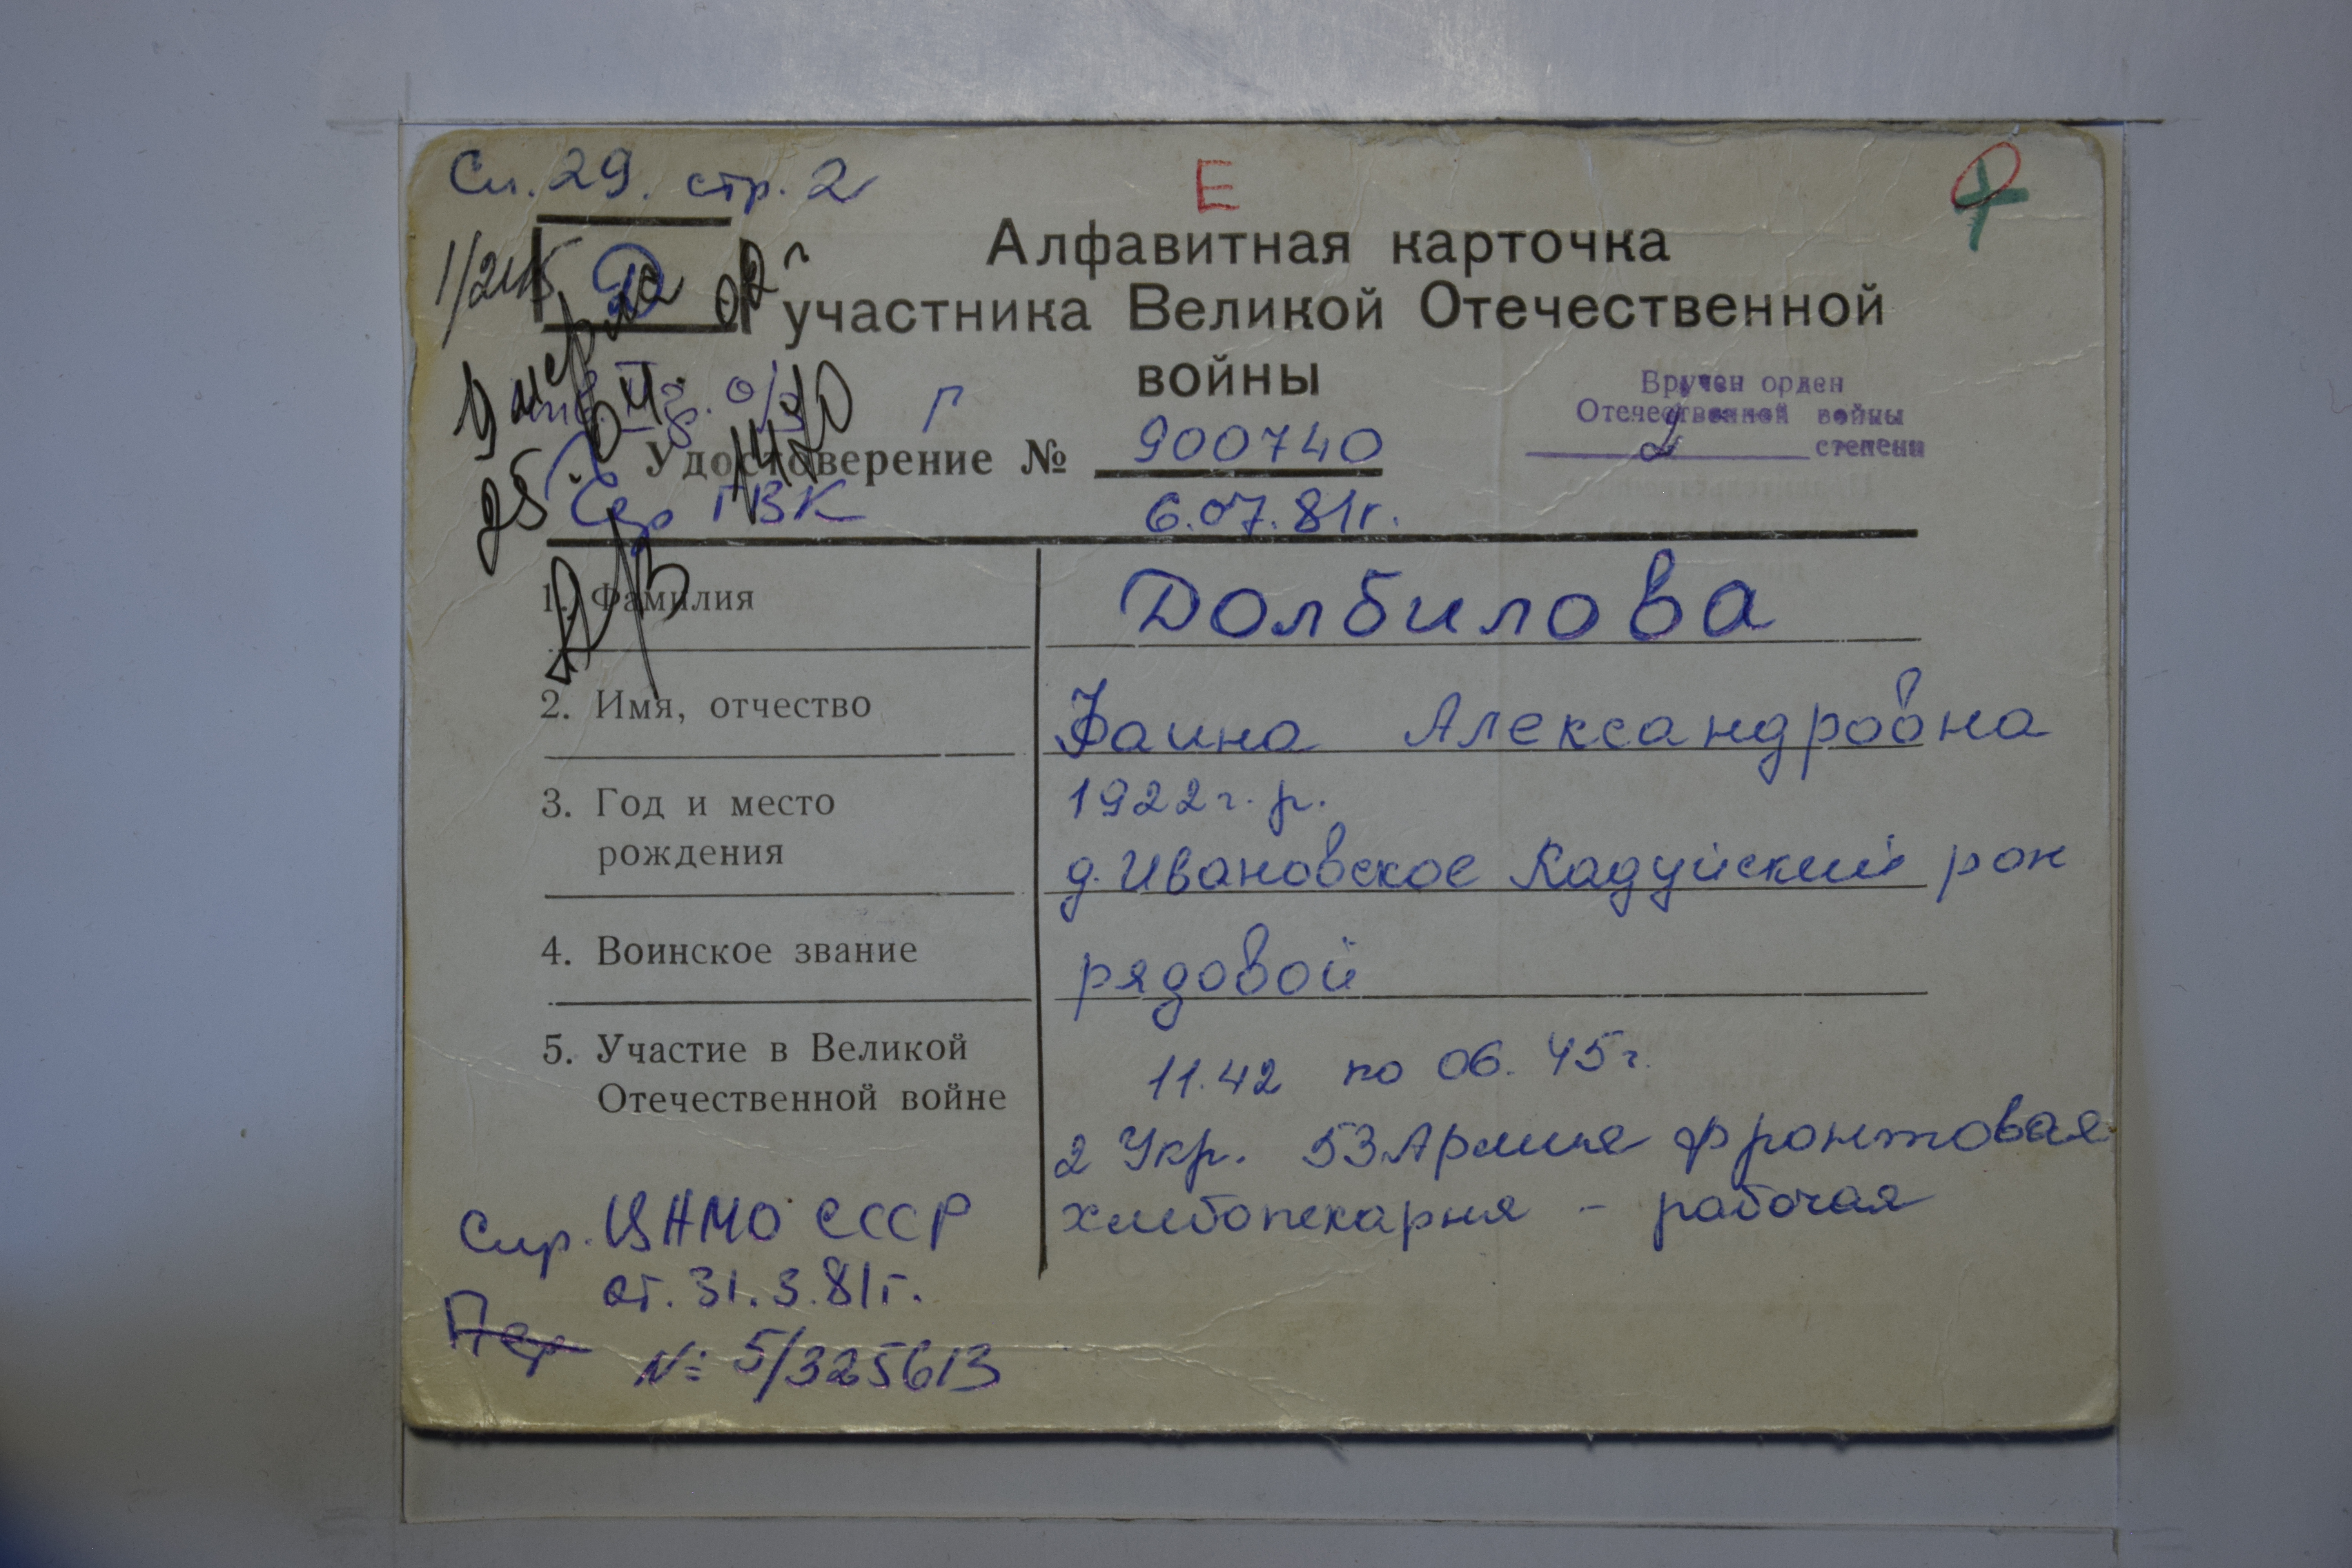 Сп. 29. стр. 2
Е
Алфавитная карточка
участника Великой Отечественной
войны
Д
умерла
Вручен орден
Отечественной войны
2 степени
Г
Удостоверение № 900740
ГВК
6.07.81г.
1. Фамилия Долбилова
2. Имя, отчество Фаина Александровна
3. Год и место 1922 г. р.
рождения д. Ивановское Кадуйский рон
4. Воинское звание рядовой
5. Участие в Великой 11.42 по 06. 45 г.
Отечественной войне
2 Укр. 53 Армия фронтовая
хлебопекарня - рабочая
Спр. ЦАМО СССР
от. 31.3.81г.
Пер
№ 5/325613